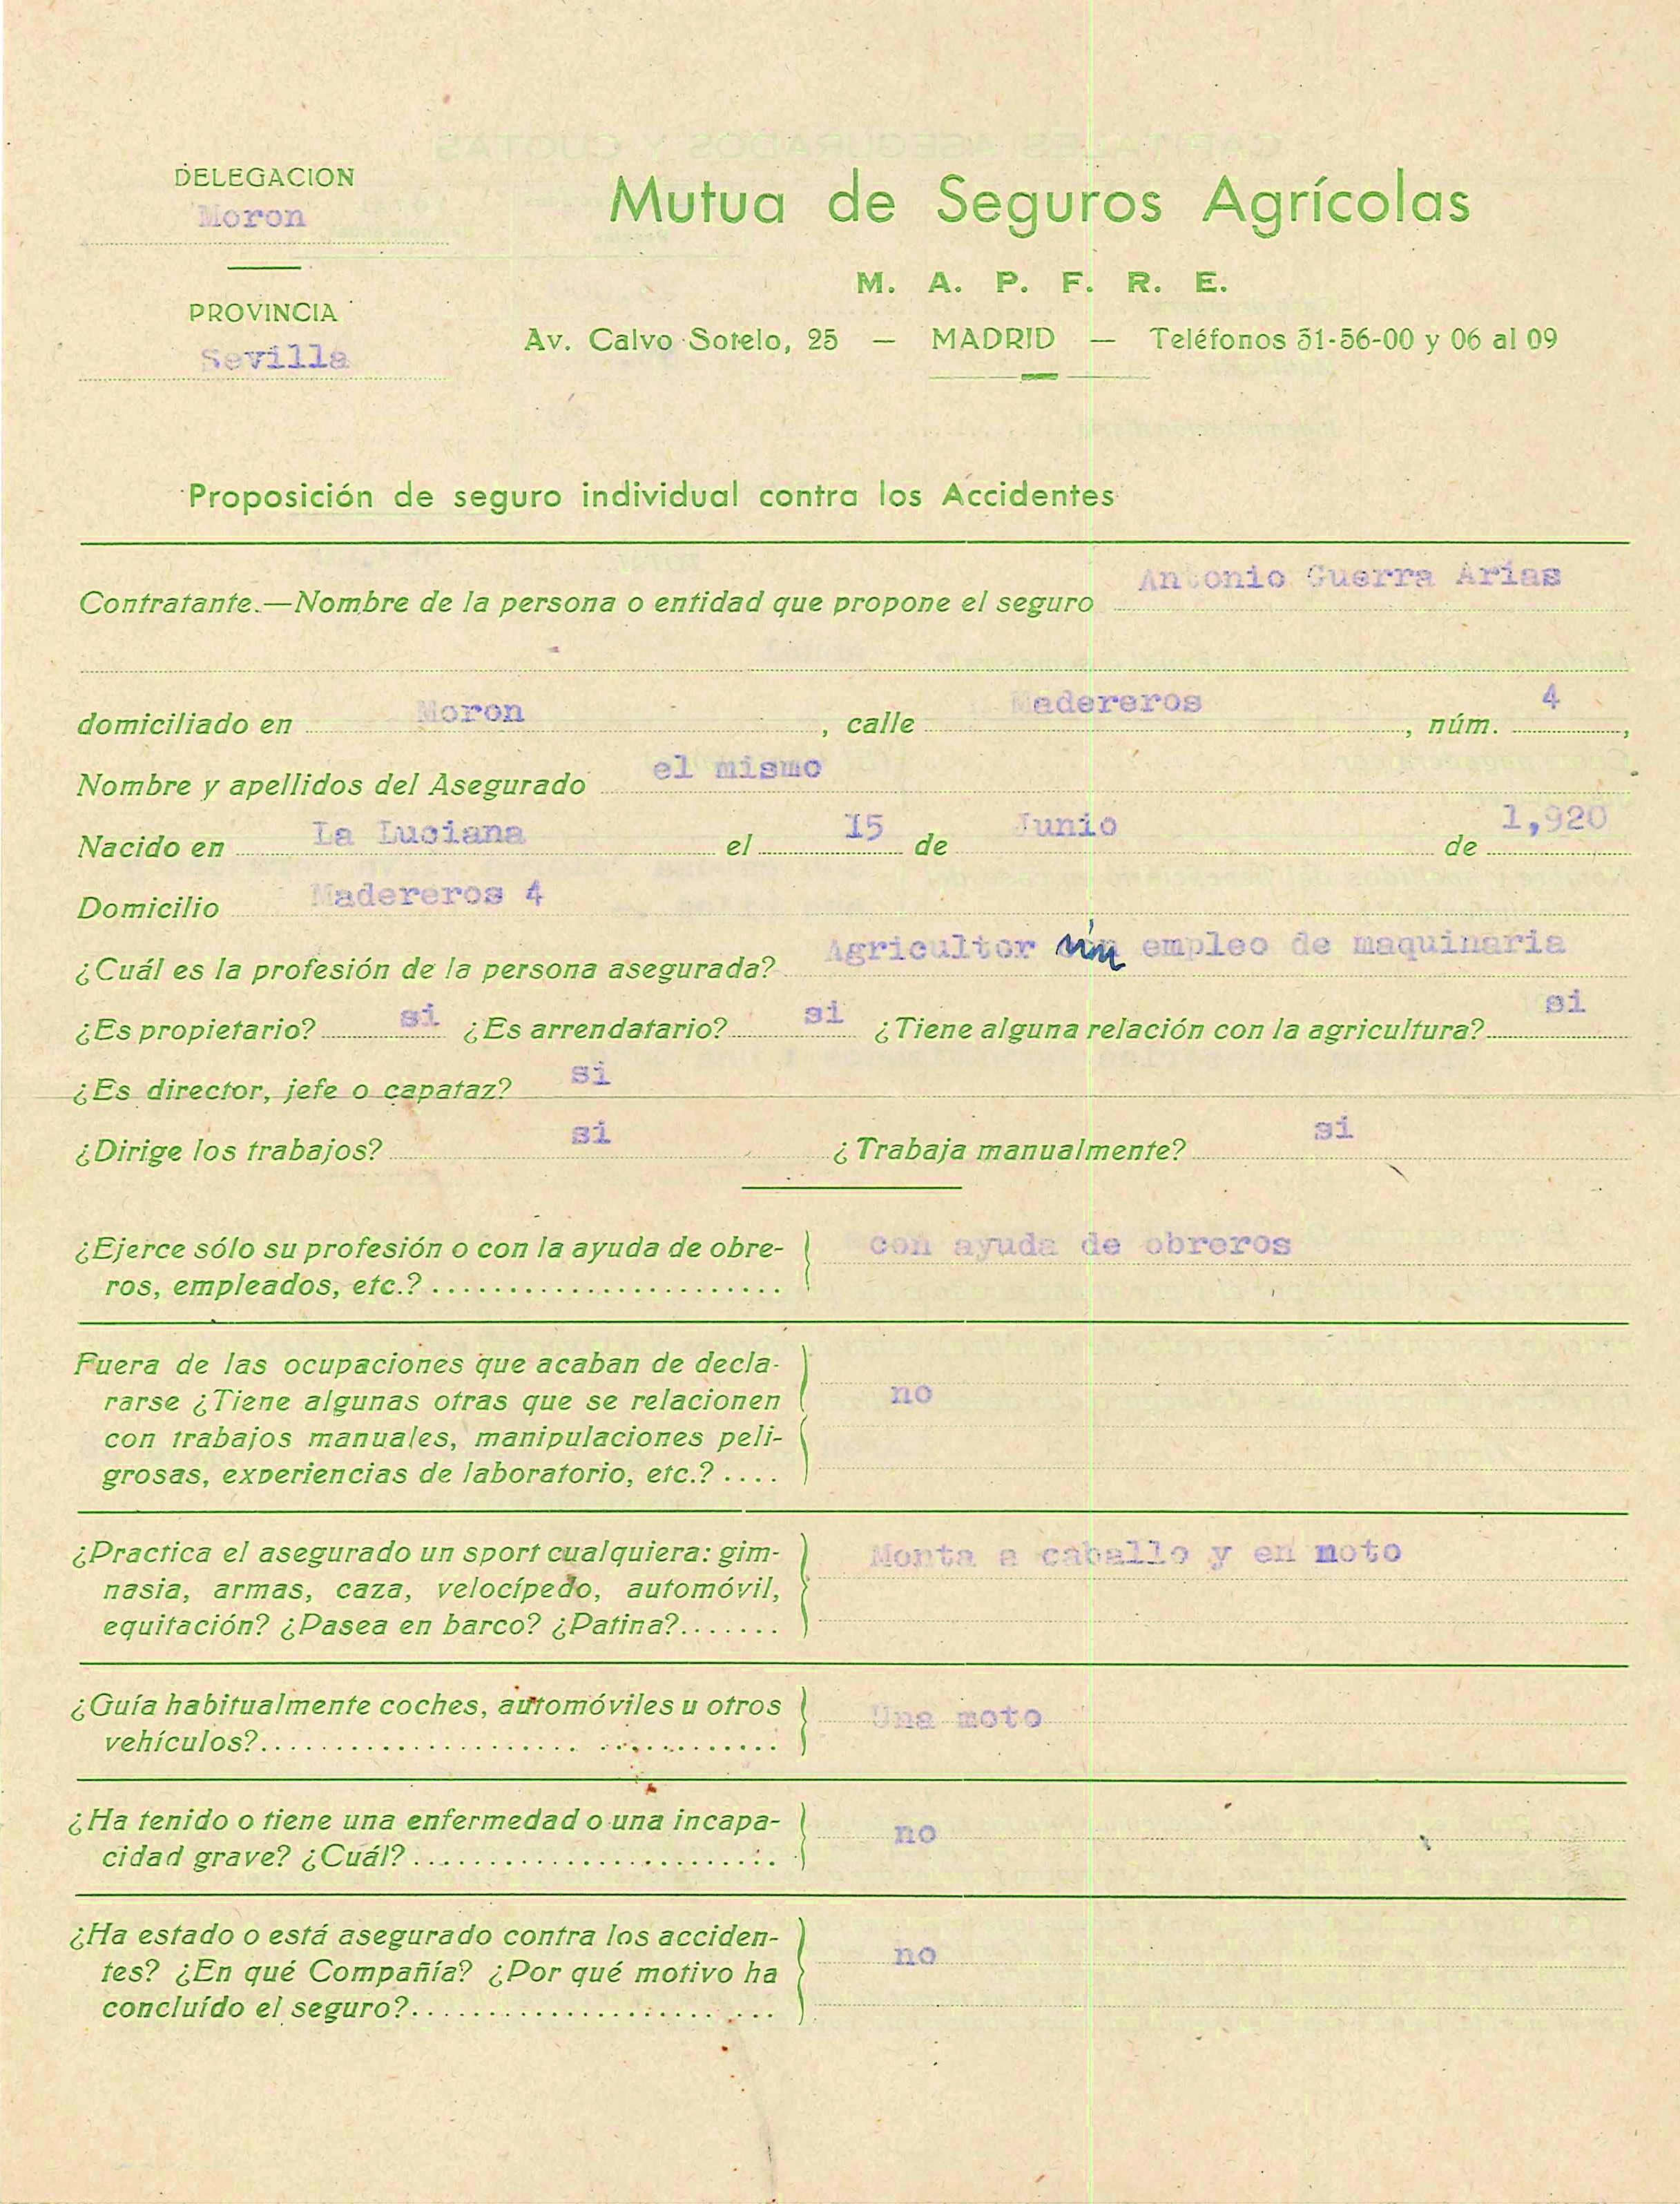 DELEGACION
Moron
PROVINCIA
Sevilla
Mutua de Seguros Agrícolas
M. A. P. F. R. E.
Av. Calvo Sotelo, 25 — MADRID — Teléfonos 31-56-00 y 06 al 09
Proposición de seguro individual contra los Accidentes
Contratante.—Nombre de la persona o entidad que propone el seguro Antonio Guerra Arias
domiciliado en Moron, calle Madereros, núm. 4,
Nombre y apellidos del Asegurado el mismo
Nacido en La Luciana el 15 de Junio de 1,920
Domicilio Madereros 4
¿Cuál es la profesión de la persona asegurada? Agricultor sin empleo de maquinaria
¿Es propietario? si ¿Es arrendatario? si ¿Tiene alguna relación con la agricultura? si
¿Es director, jefe o capataz? si
¿Dirige los trabajos? si ¿Trabaja manualmente? si
¿Ejerce sólo su profesión o con la ayuda de obre-
ros, empleados, etc.? con ayuda de obreros
Fuera de las ocupaciones que acaban de decla-
rarse ¿Tiene algunas otras que se relacionen no
con trabajos manuales, manipulaciones peli-
grosas, experiencias de laboratorio, etc.?
¿Practica el asegurado un sport cualquiera: gim- Monta a caballo y en moto
nasia, armas, caza, velocípedo, automóvil,
equitación? ¿Pasea en barco? ¿Patina?
¿Guía habitualmente coches, automóviles u otros Una moto
vehículos?
¿Ha tenido o tiene una enfermedad o una incapa- no
cidad grave? ¿Cuál?
¿Ha estado o está asegurado contra los acciden- no
tes? ¿En qué Compañía? ¿Por qué motivo ha
concluído el seguro?